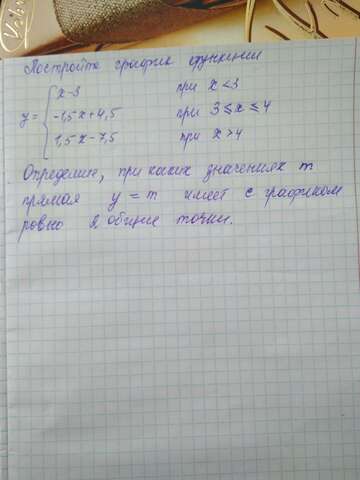 Постройте график функции
x-3 при x<3
y= -1,5x+4,5 при 3≤x≤4
1,5x-7,5 при x>4
Определите, при каких значениях m
прямая y=m имеет с графиком
ровно 2 общие точки.